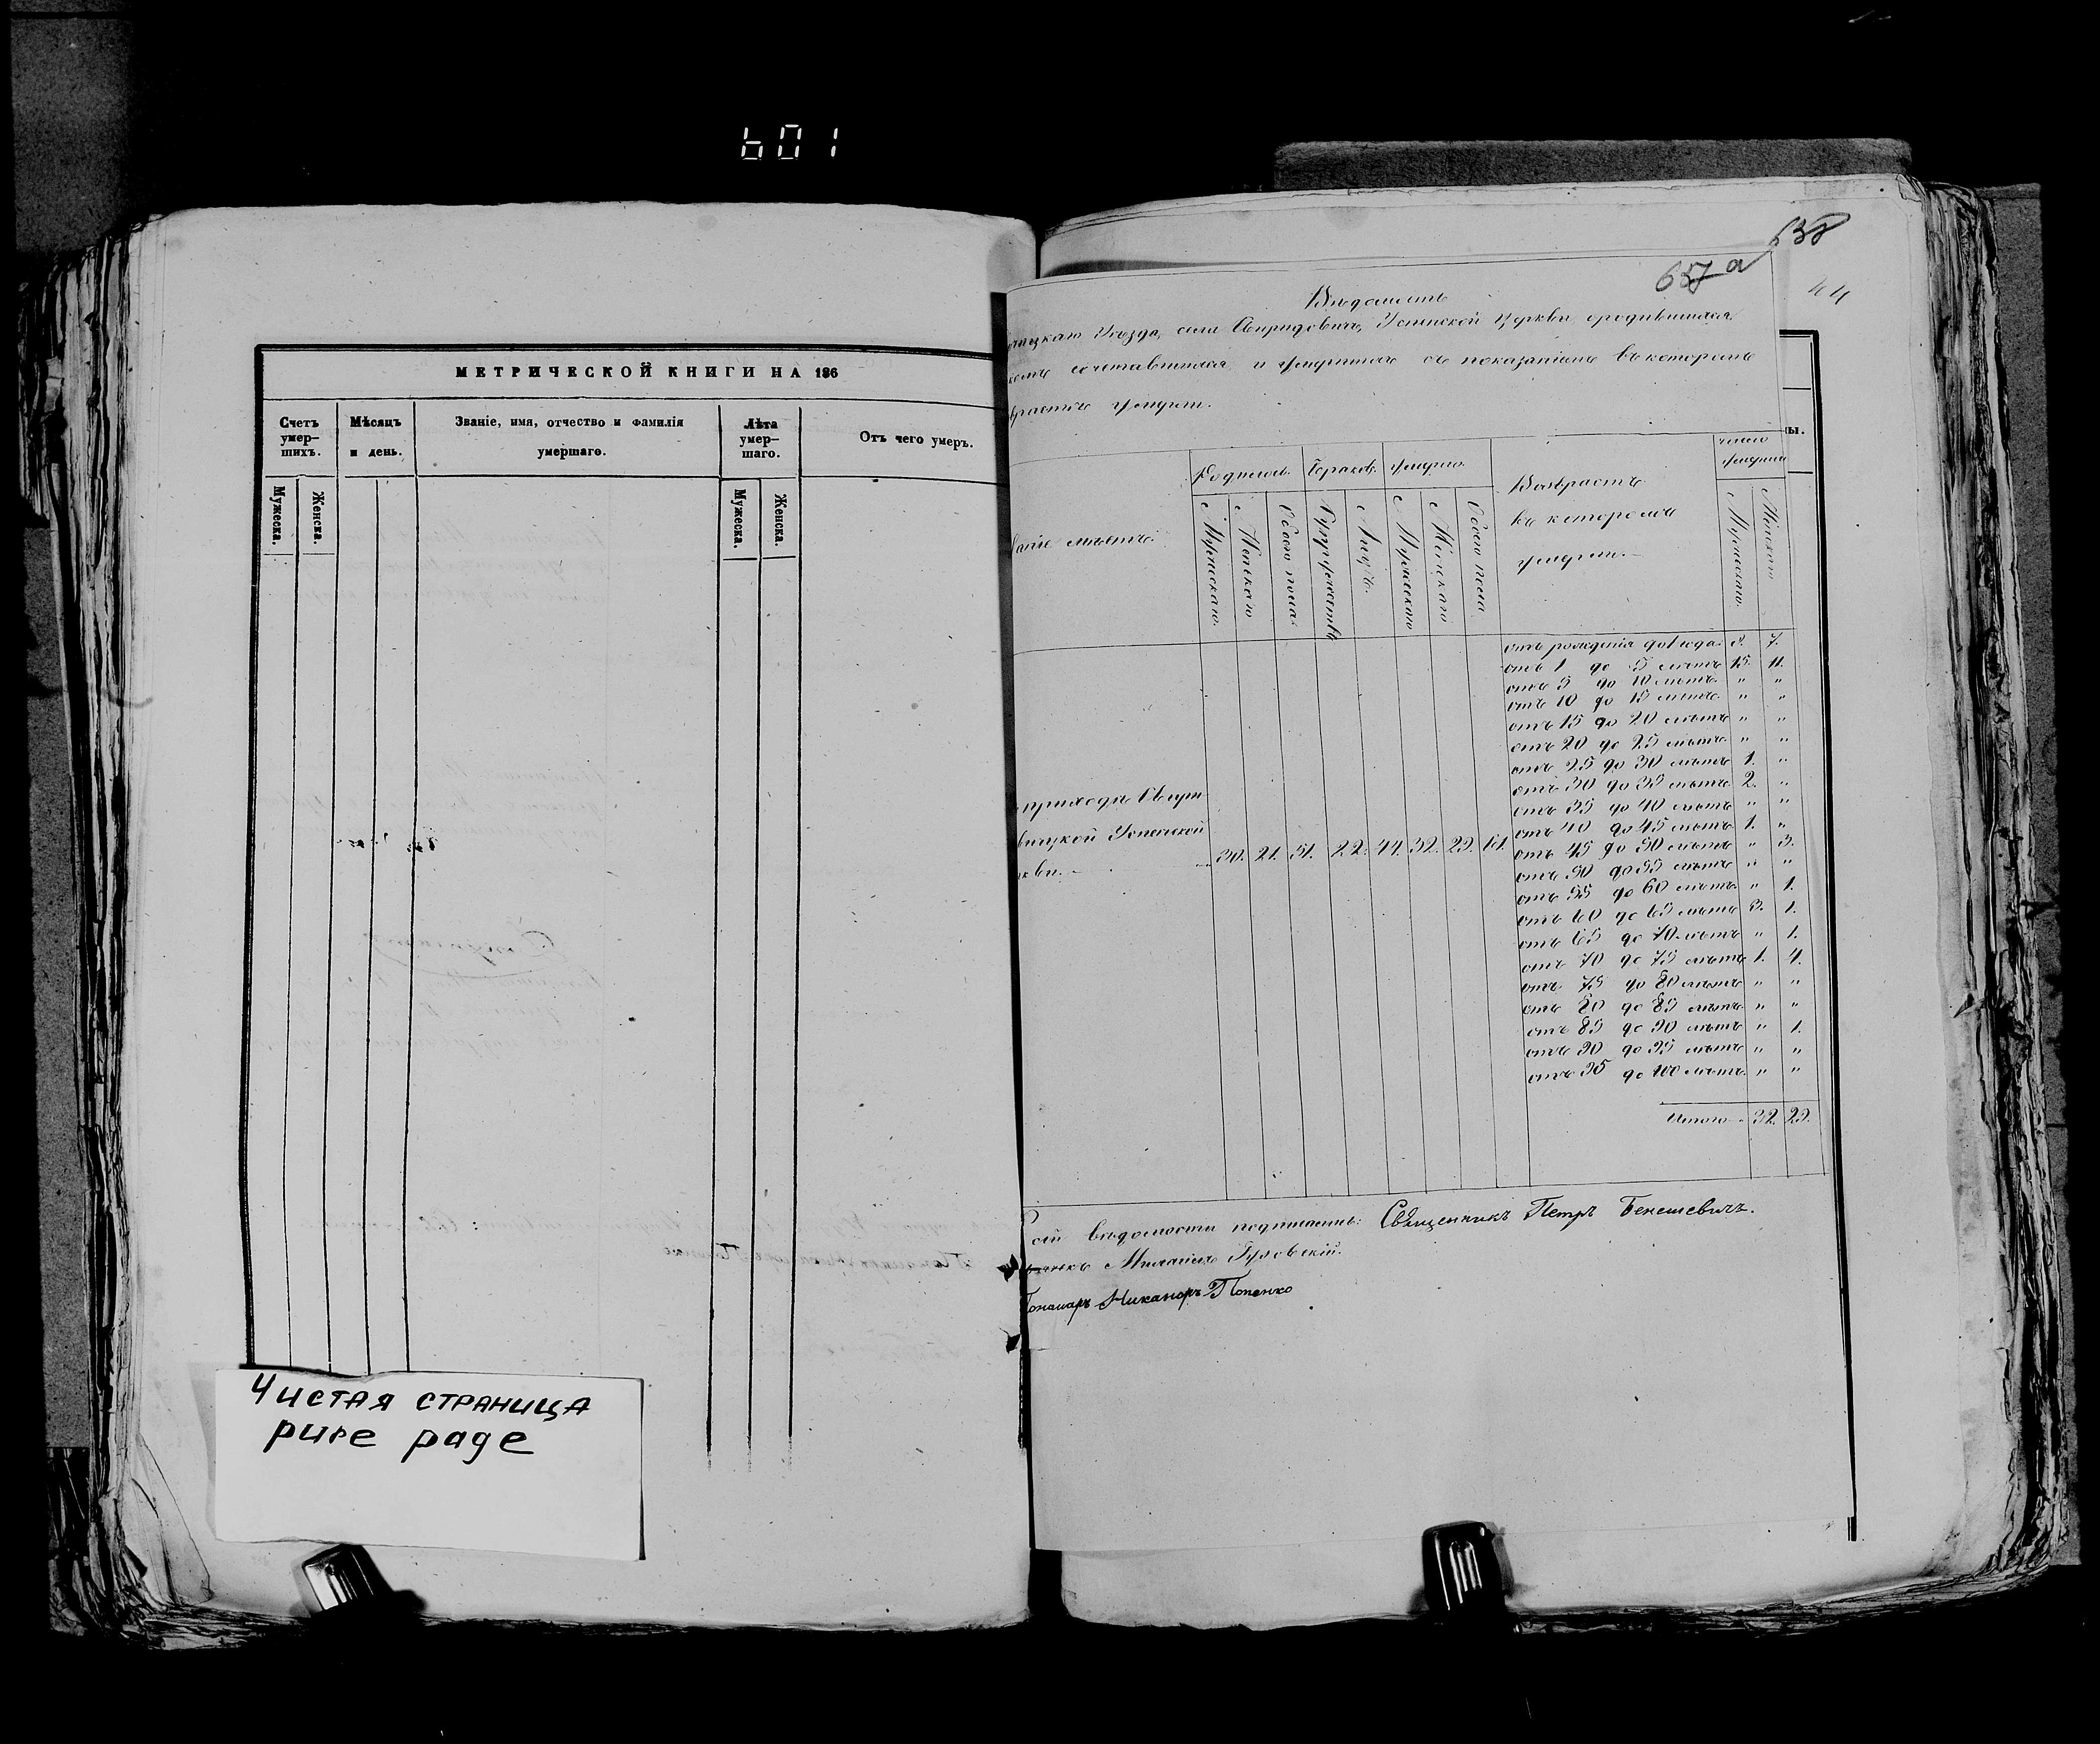 601
МЕТРИЧЕСКОЙ КНИГИ НА 186
Счетъ умер-шихъ.
Мѣсяцъ и день.
Званіе, имя, отчество и фамилія умершаго.
Лѣта умер-шаго.
Отъ чего умеръ.
Мужеска.
Женска.
Мужеска.
Женска.
Чистая страница
pure page
638
657 а
44
ы.
Вѣдомость
Уѣзда, села Успенской Церкви
сочетавшихся и умершихъ съ показаніемъ въ которомъ
умерли.
Родилось
Браков.
Умерло.
Возврастъ
въ которомъ
умерли.—
число
умерших
мѣстъ.
Мужескаго.
Женскаго
Обоего пола.
Супружествъ
Лицъ.
Мужескаго
Женскаго
Обоего пола.
Мужескаго.
Женскаго
отъ рожденія до 1 года. 8. 7.
отъ 1 до 5 лѣтъ 15. 11.
отъ 5 до 10 лѣтъ. " "
отъ 10 до 15 лѣтъ. " "
отъ 15 до 20 лѣтъ " "
отъ 20 до 25 лѣтъ. " "
отъ 25 до 30 лѣтъ 1. "
отъ 30 до 35 лѣтъ 2. "
отъ 35 до 40 лѣтъ " "
отъ 40 до 45 лѣтъ 1. "
отъ 45 до 50 лѣтъ " 3.
отъ 50 до 55 лѣтъ " "
отъ 55 до 60 лѣтъ " 1.
отъ 60 до 65 лѣтъ 3. 1.
отъ 65 до 70 лѣтъ " 1.
отъ 70 до 75 лѣтъ 1. 4.
отъ 75 до 80 лѣтъ " "
отъ 80 до 85 лѣтъ " "
отъ 85 до 90 лѣтъ " 1.
отъ 90 до 95 лѣтъ " "
отъ 95 до 100 лѣтъ " "
приходѣ
Успенской
30. 21. 51. 22. 44. 32. 29. 61.
Итого 32. 29.
вѣдомости подписались: Священникъ Петръ Бенешевичъ.
Михаилъ
Пономарь Никаноръ Попенко